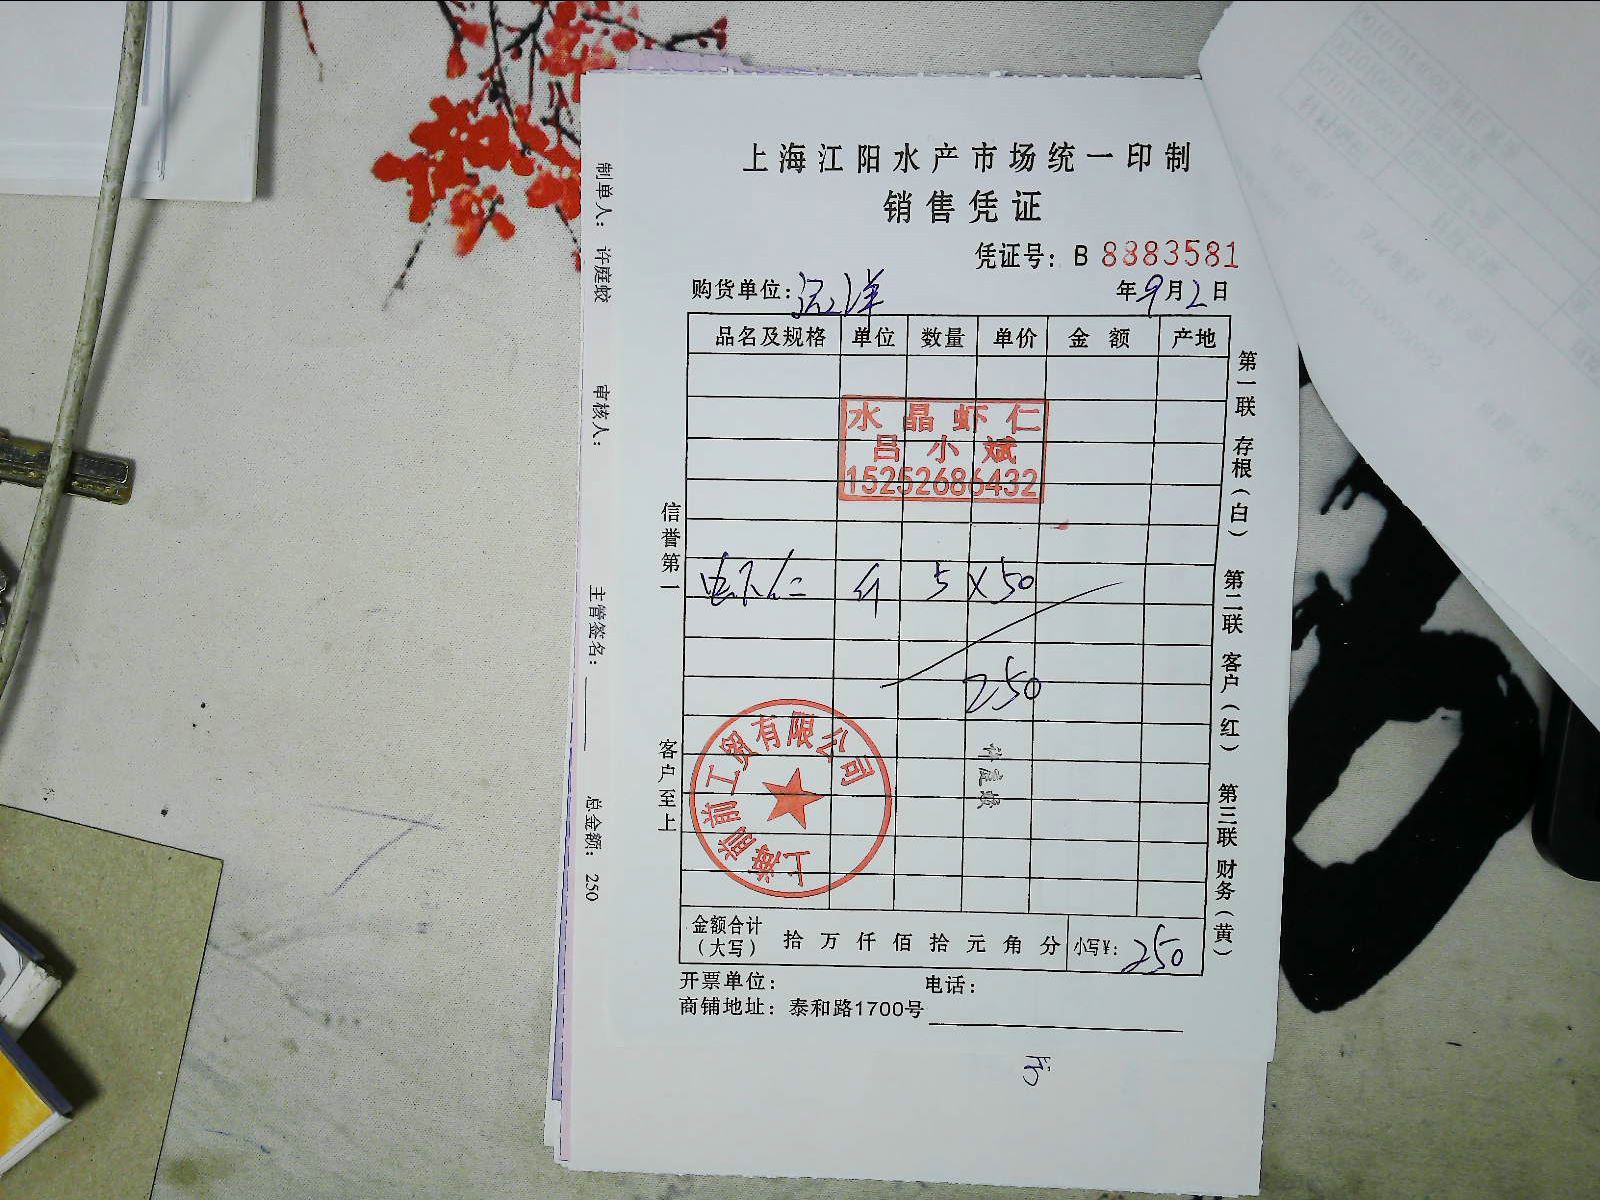 上海江阳水产市场统一印制
销售凭证
凭证号：B 8883581
购货单位：
年9月2日
品名及规格 单位 数量 单价 金额 产地
水晶虾仁
吕小斌
15252686432
斤 5×50
250
上海前前工贸有限公司
金额合计（大写） 拾 万 仟 佰 拾 元 角 分 小写¥：250
开票单位： 电话：
商铺地址：泰和路1700号
信誉第一 客户至上
第一联 存根（白） 第二联 客户（红） 第三联 财务（黄）
制单人： 许庭蛟 审核人： 主管签名： 总金额： 250